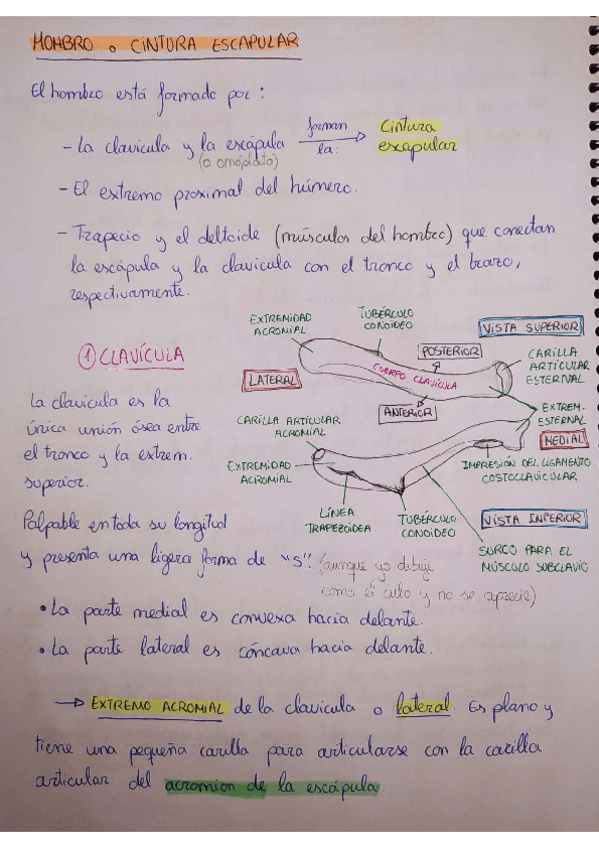 HOMBRO o CINTURA ESCAPULAR
El hombro está formado por :
- La clavícula y la escápula forman la: Cintura escapular
(o omóplato)
- El extremo proximal del húmero.
- Trapecio y el deltoide (músculos del hombro) que conectan
la escápula y la clavícula con el tronco y el brazo,
respectivamente.
EXTREMIDAD ACROMIAL
TUBÉRCULO CONOIDEO
VISTA SUPERIOR
1 CLAVÍCULA
LATERAL
POSTERIOR
CUERPO CLAVÍCULA
ANTERIOR
CARILLA ARTICULAR ESTERNAL
La clavícula es la
única unión ósea entre
el tronco y la extrem.
superior.
CARILLA ARTICULAR ACROMIAL
EXTREM. ESTERNAL
MEDIAL
EXTREMIDAD ACROMIAL
IMPRESIÓN DEL LIGAMENTO COSTOCLAVICULAR
LÍNEA TRAPEZOIDEA
TUBÉRCULO CONOIDEO
VISTA INFERIOR
SURCO PARA EL MÚSCULO SUBCLAVIO
Palpable en toda su longitud
y presenta una ligera forma de "S". (aunque yo dibuje
como el culo y no se aprecie)
• La parte medial es convexa hacia delante.
• La parte lateral es cóncava hacia delante.
→ EXTREMO ACROMIAL de la clavícula o lateral. Es plano y
tiene una pequeña carilla para articularse con la carilla
articular del acromion de la escápula.